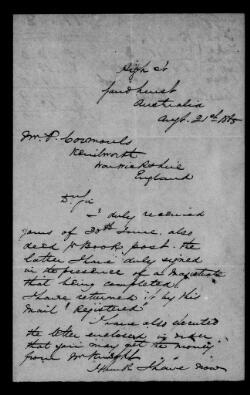 High St
Sandhurst
Australia
Augt. 21st 18
Mr. P.
Kenilworth
Warwickshire
England
D Sir
I duly received
yours of 30th June. also
deed p Book post. the
latter I have duly signed
in the presence of a Magistrate
that being completed
I have returned it by this
Mail Registered
I have also executed
the letter enclosed in order
that you may get the money
from Mr Knight
I think I have now